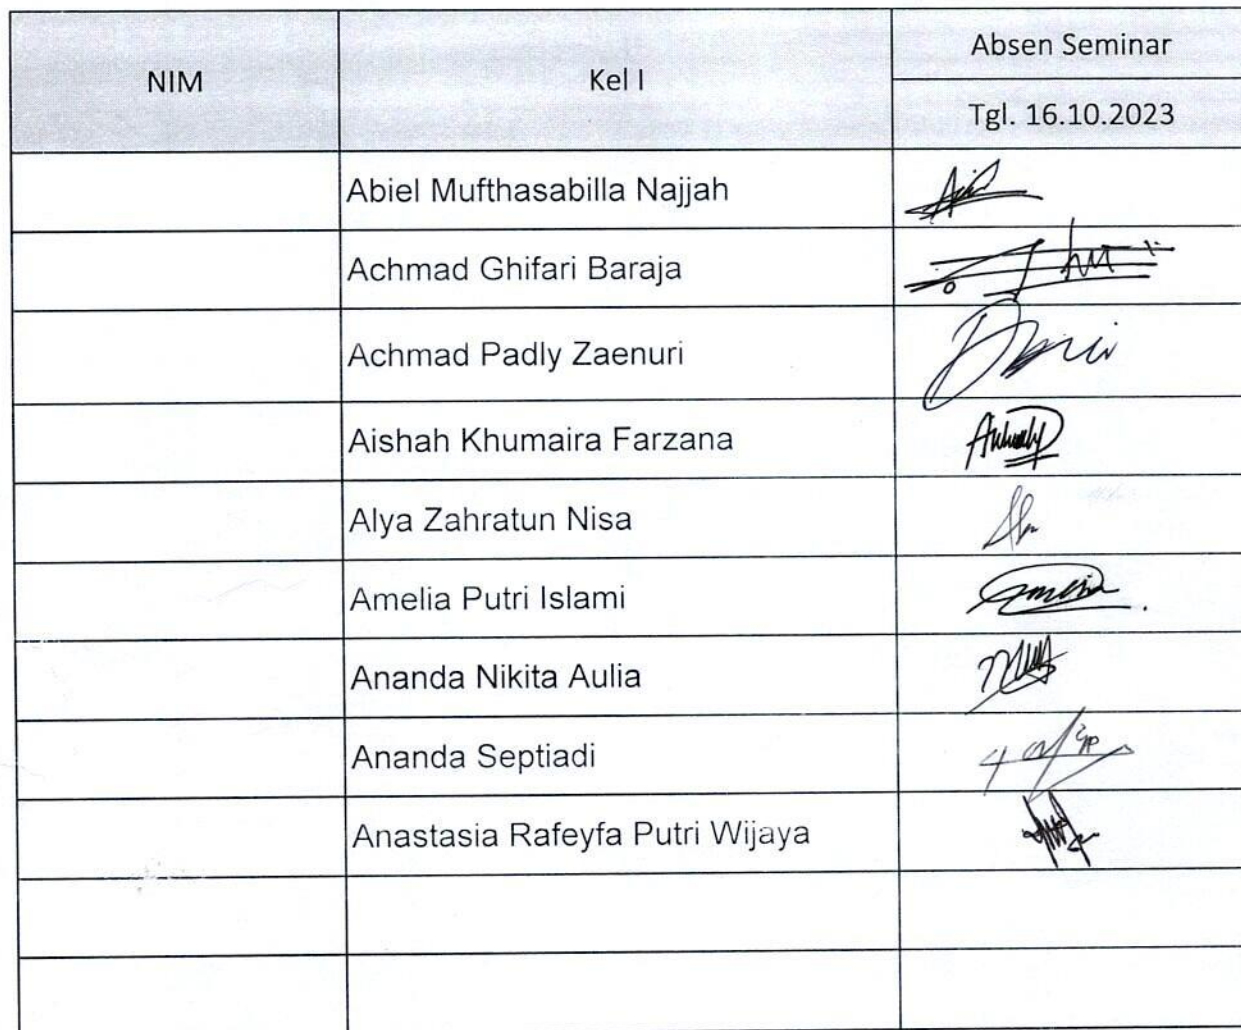 NIM
Kel I
Absen Seminar
Tgl. 16.10.2023
Abiel Mufthasabilla Najjah
Achmad Ghifari Baraja
Achmad Padly Zaenuri
Aishah Khumaira Farzana
Alya Zahratun Nisa
Amelia Putri Islami
Ananda Nikita Aulia
Ananda Septiadi
Anastasia Rafeyfa Putri Wijaya